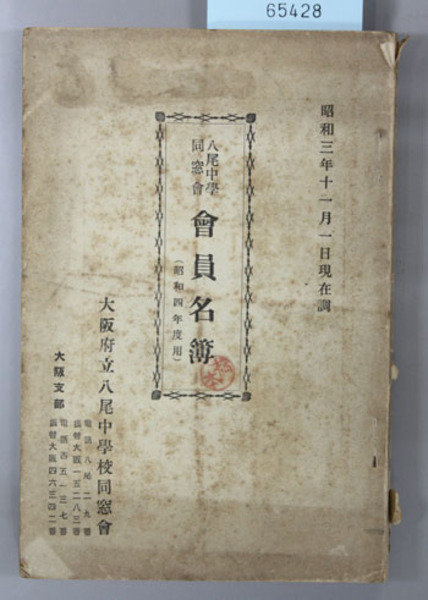 65428
昭和三年十一月一日現在調
八尾中學
同窓會
會員名簿
(昭和四年度用)
大阪府立八尾中學校同窓會
電話八尾二九番
振替大阪一五二八三番
大阪支部
振替大阪四六三四二番